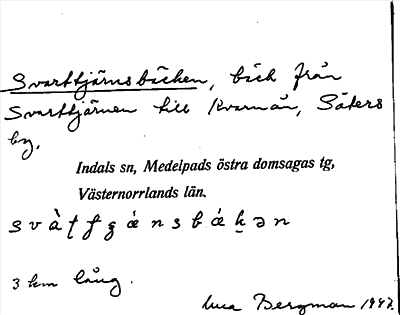 Svarttjärnsbäcken, bäck från
Svarttjärnen till Kvarnån, Säters
by.
Indals sn, Medelpads östra domsagas tg,
Västernorrlands län.
3 km lång.
Bergman 1947.